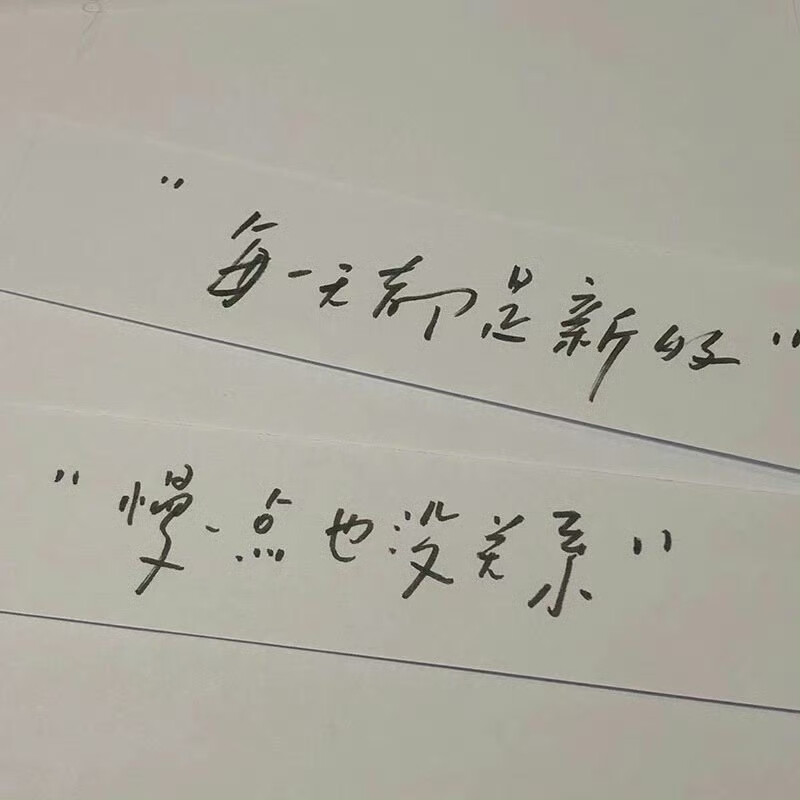 "每一天都是新好"
"慢一点也没关系"